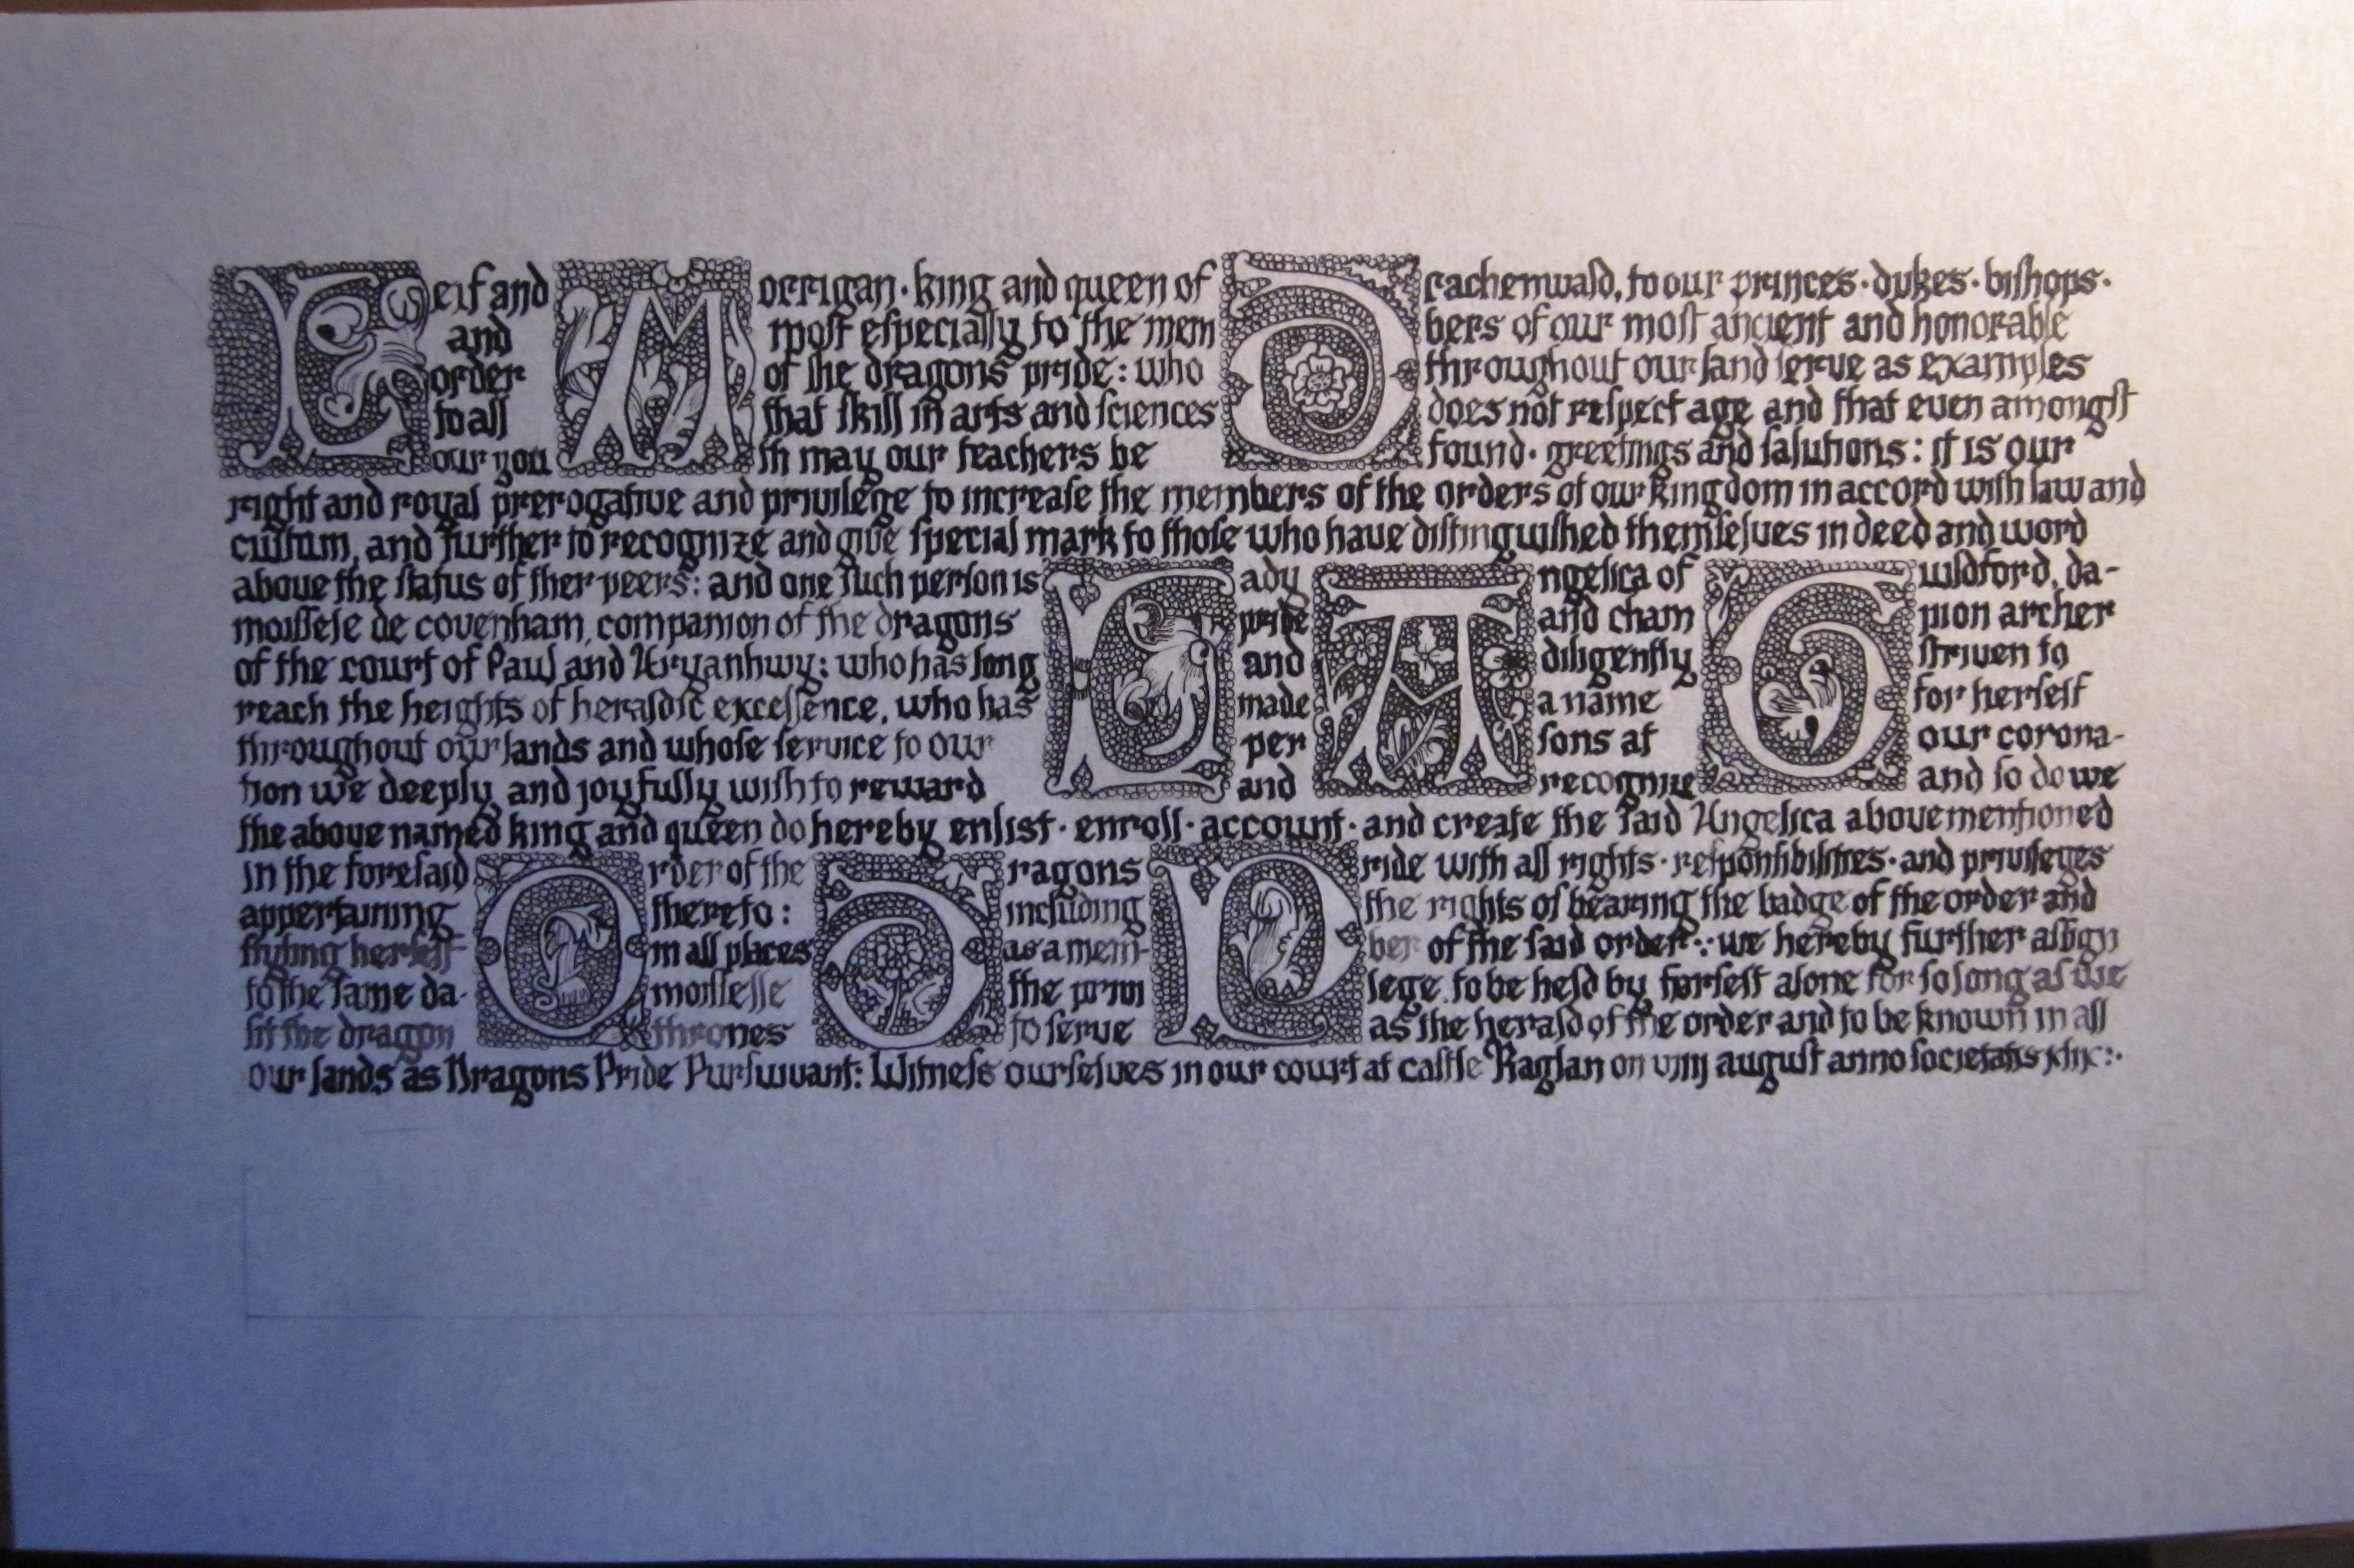 Leif and Morrigan · king and queen of Drachenwald, to our princes · dukes · bishops ·
and most especially to the mem bers of our most ancient and honorable
order of the dragons pride : who throughout our land serve as examples
to all that skill in arts and sciences does not respect age and that even amongst
our you th may our teachers be found · greetings and salutions : it is our
right and royal prerogative and privilege to increase the members of the orders of our kingdom in accord with law and
custum, and further to recognize and give special mark to those who have distinguished themselves in deed and word
above the status of ther peers : and one such person is Lady Angelica of Guldford, da-
moisele de covenham, companion of the dragons pride and cham pion archer
of the court of Paul and Aryanhwy : who has long and diligently striven to
reach the heights of heraldic excellence, who has made a name for herself
throughout our lands and whose service to our per sons at our corona-
tion we deeply and joyfully wish to reward and recognize and so do we
the above named king and queen do hereby enlist · enroll · account · and create the said Angelica above mentioned
in the foresaid Order of the Dragons Pride with all rights · responsibilities · and privileges
appertaining thereto : including the rights of bearing the badge of the order and
styling herself in all places as a mem- ber of the said order :· we hereby further assign
to the same da- moisslesse the privi lege to be held by herself alone for so long as we
sit the dragon thrones to serve as the herald of the order and to be known in all
our lands as Dragons Pride Pursuivant : Witness ourselves in our court at castle Raglan on viiij august anno societatis xlix :·